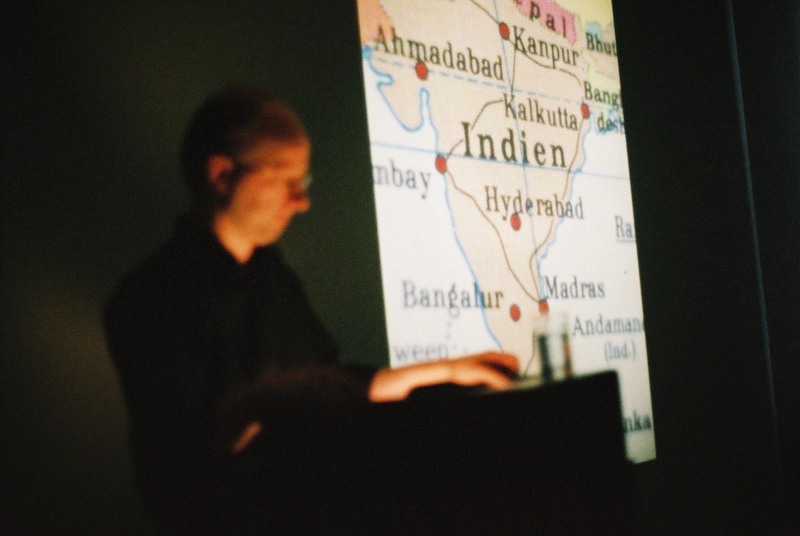 epal
Kanpur
Bhut
Ahmadabad
Bang
Kalkutta
desh
Indien
mbay
Hyderabad
Ra
Bangalur
Madras
Andaman
(Ind.)
ween
nka